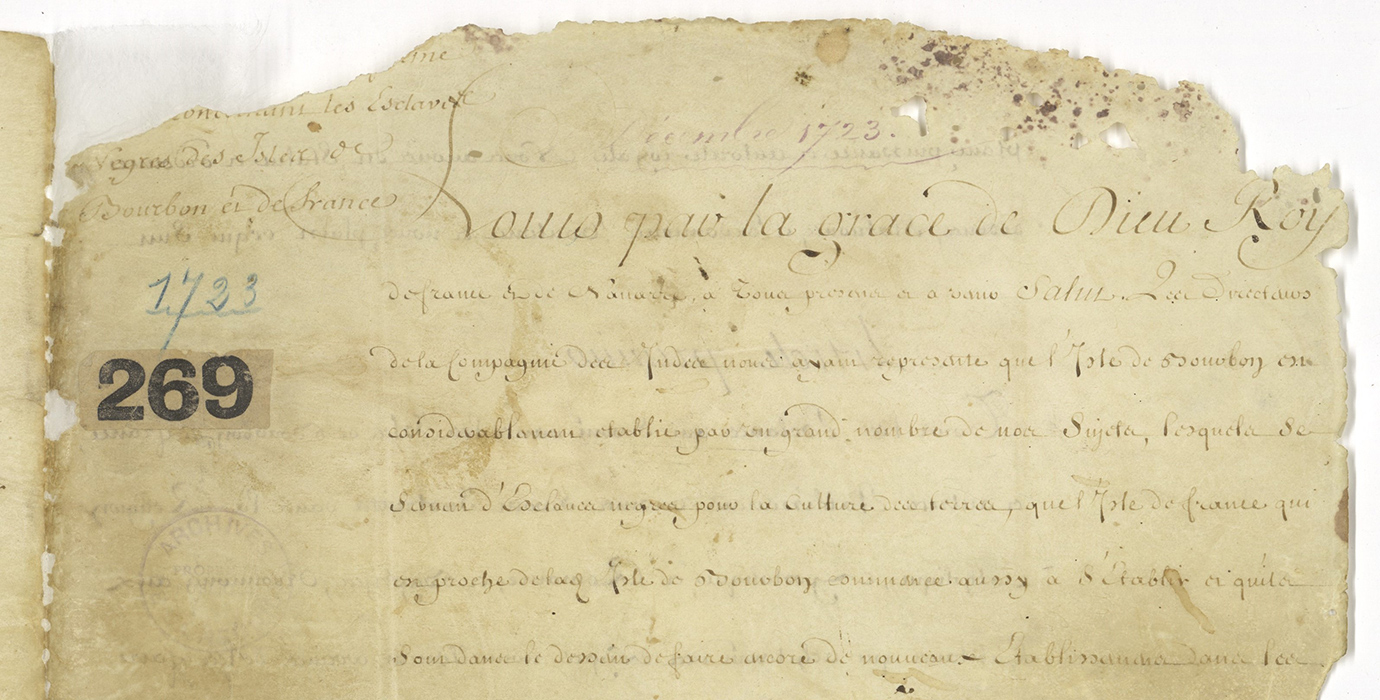 concernant les Esclaves
Negres des Isles de
Bourbon et de france
1723
269
ARCHIVES
Décembre 1723.
Louis par la grace de Dieu Roy
de france et de Navarre, a Tous presens et a venir Salut. Les Directeurs
de la Compagnie des Indes nous ayant representé que l'Isle de Bourbon est
considerablement etablie par un grand nombre de nos Sujets, lesquels se
servent d'Esclaves negres pour la Culture des terres, que l'Isle de france qui
est proche de lad. Isle de Bourbon commence aussy a s'Etablir et qu'ils
sont dans le dessein de faire encore de nouveaux Etablissemens dans les